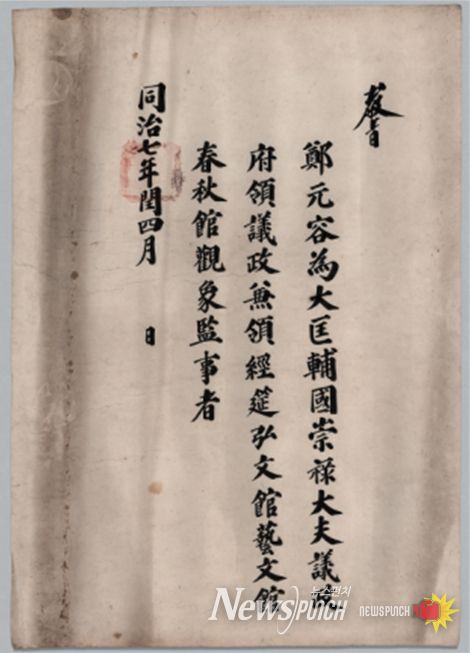 教旨
鄭元容為大匡輔國崇祿大夫議政
府領議政兼領經筵弘文館藝文館
春秋館觀象監事者
同治七年閏四月 日
뉴스펀치
NewsPunch
NEWSPUNCH